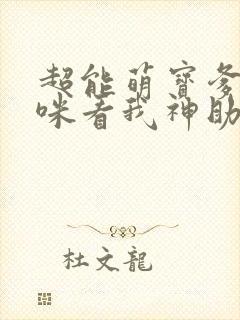 超能萌寶爹
咪看我神助
杜文龍